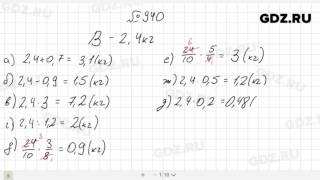 GDZ.RU
№940
В - 2,4кг
а) 2,4+0,7 = 3,1(кг)
б) 2,4-0,9 = 1,5(кг)
в) 2,4·3 = 7,2(кг)
г) 2,4:1,2 = 2(кг)
д) 24/10 · 3/8 = 0,9(кг)
е) 24/10 · 5/4 = 3(кг)
ж) 2,4·0,5 = 1,2(кг)
з) 2,4·0,2 = 0,48(
GDZ.RU